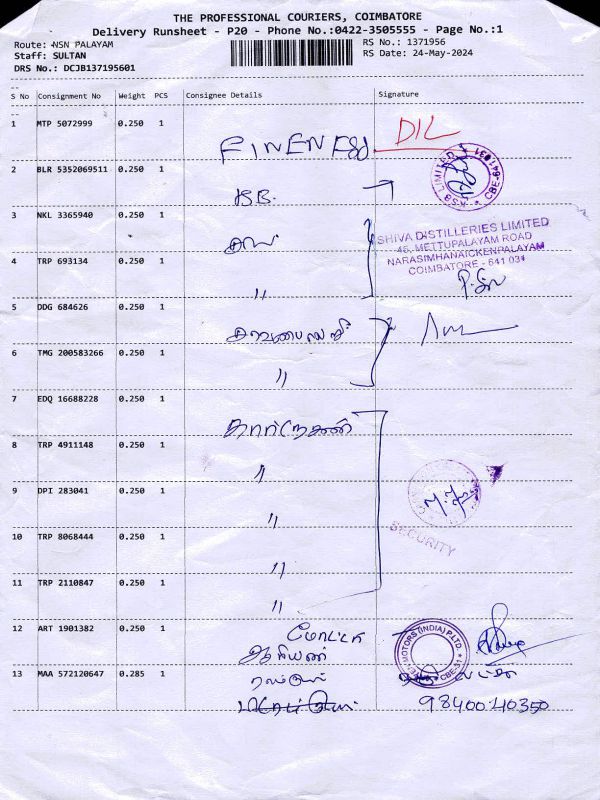 THE PROFESSIONAL COURIERS, COIMBATORE
Delivery Runsheet - P20 - Phone No.:0422-3505555 - Page No.:1
Route: NSN PALAYAM
RS No.: 1371956
Staff: SULTAN
RS Date: 24-May-2024
DRS No.: DCJB137195601
S No Consignment No Weight PCS Consignee Details Signature
1 MTP 5072999 0.250 1
DIL
2 BLR 5352069511 0.250 1
KSB
CBE-641 031
3 NKL 3365940 0.250 1
SHIVA DISTILLERIES LIMITED
46, METTUPALAYAM ROAD
NARASIMHANAICKENPALAYAM
COIMBATORE - 641 031
4 TRP 693134 0.250 1
"
5 DDG 684626 0.250 1
6 TMG 200583266 0.250 1
"
7 EDQ 16688228 0.250 1
8 TRP 4911148 0.250 1
"
9 DPI 283041 0.250 1
"
SECURITY
10 TRP 8068444 0.250 1
"
11 TRP 2110847 0.250 1
"
12 ART 1901382 0.250 1
மோட்டா
MOTORS (INDIA) P.LTD.
CBE-31
13 MAA 572120647 0.285 1
98400 40350